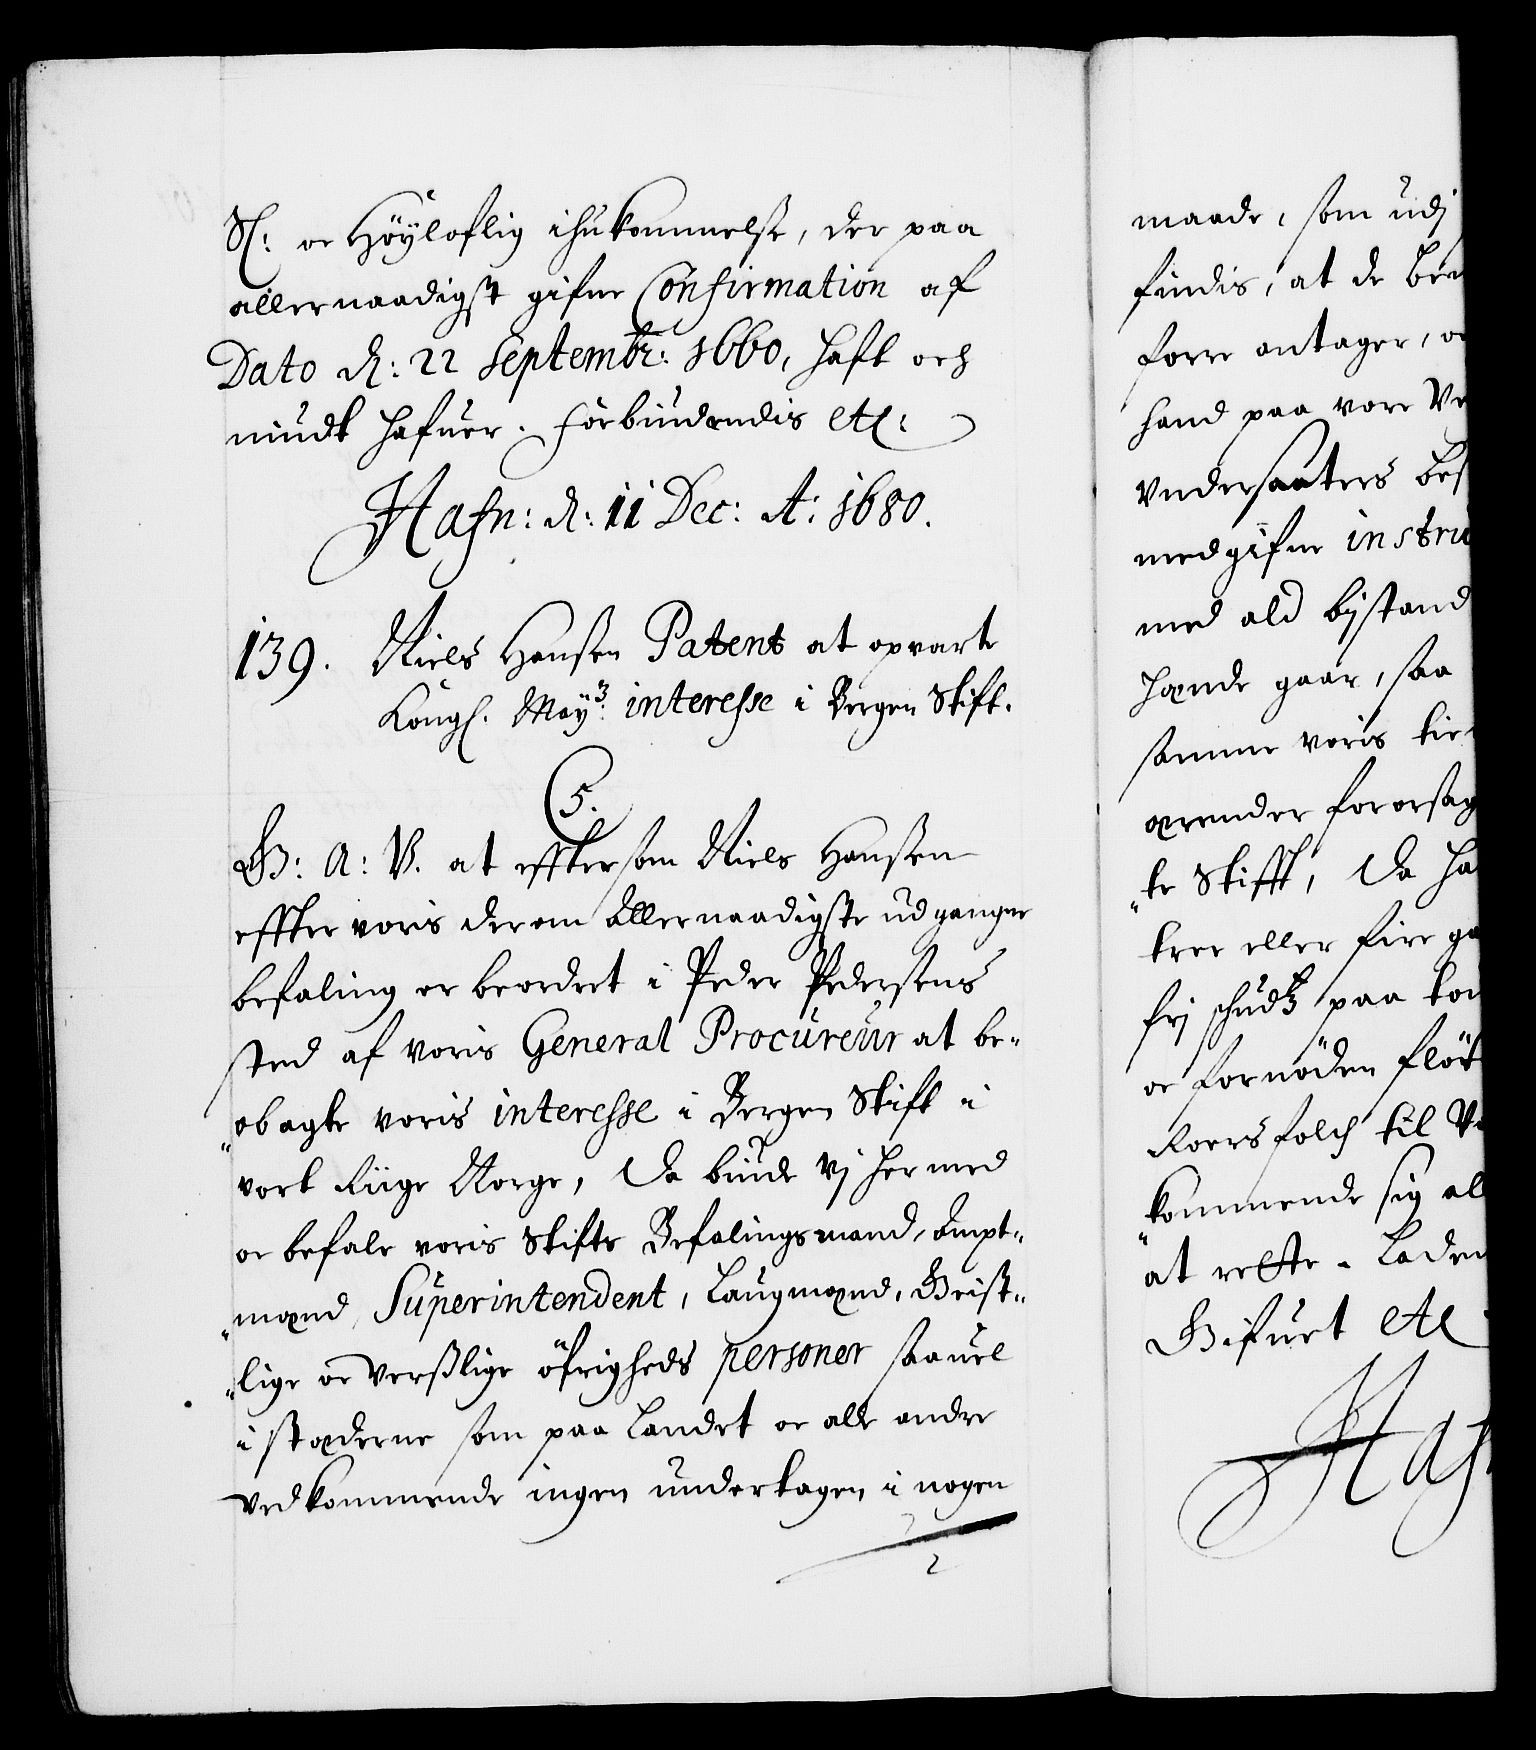 Sl: oc Höyloflig ihukommelse, der paa
allernaadigst gifne Confirmation af
Dato d: 22 Septembr: 1660, haft och
niudt hafuer. Forbiudendis etc:
Hafn: d: 11 Dec: A: 1680.
139. Niels Hansen Patent at opvarte
Kongl. Mayts: interesse i Bergen Stift.
C 5.
G: A: V. at efftersom Niels Hansen
effter voris derom allernaadigste udgangne
befaling er beordret i Peder Pedersens
sted af voris General Procureur at be-
"obagte voris interesse i Bergen Stift i
vort Riige Norge, Da biude Vj hermed
oc befale voris Stifts Befalingsmand, Ampt-
"mænd, Superintendent, Laugmænd, Geist-
"lige oc Verdslige öfrigheds personer saauel
i stæderne som paa Landet oc alle andre
vedkommende ingen undertagen i nogen
2
maade, som udj
findis, at de
forre antager, oc
haand paa vore
Undersaatters
medgifne instru
med ald bijstand
hænde gaar, saa
samme voris
ærender forarsag
"te Stifft, Da ha
tree eller fire
frj schudtz paa
oc fornöden flöt
Roersfolch til
"kommende sig
at rette. Laden
Gifuet etc
Haf